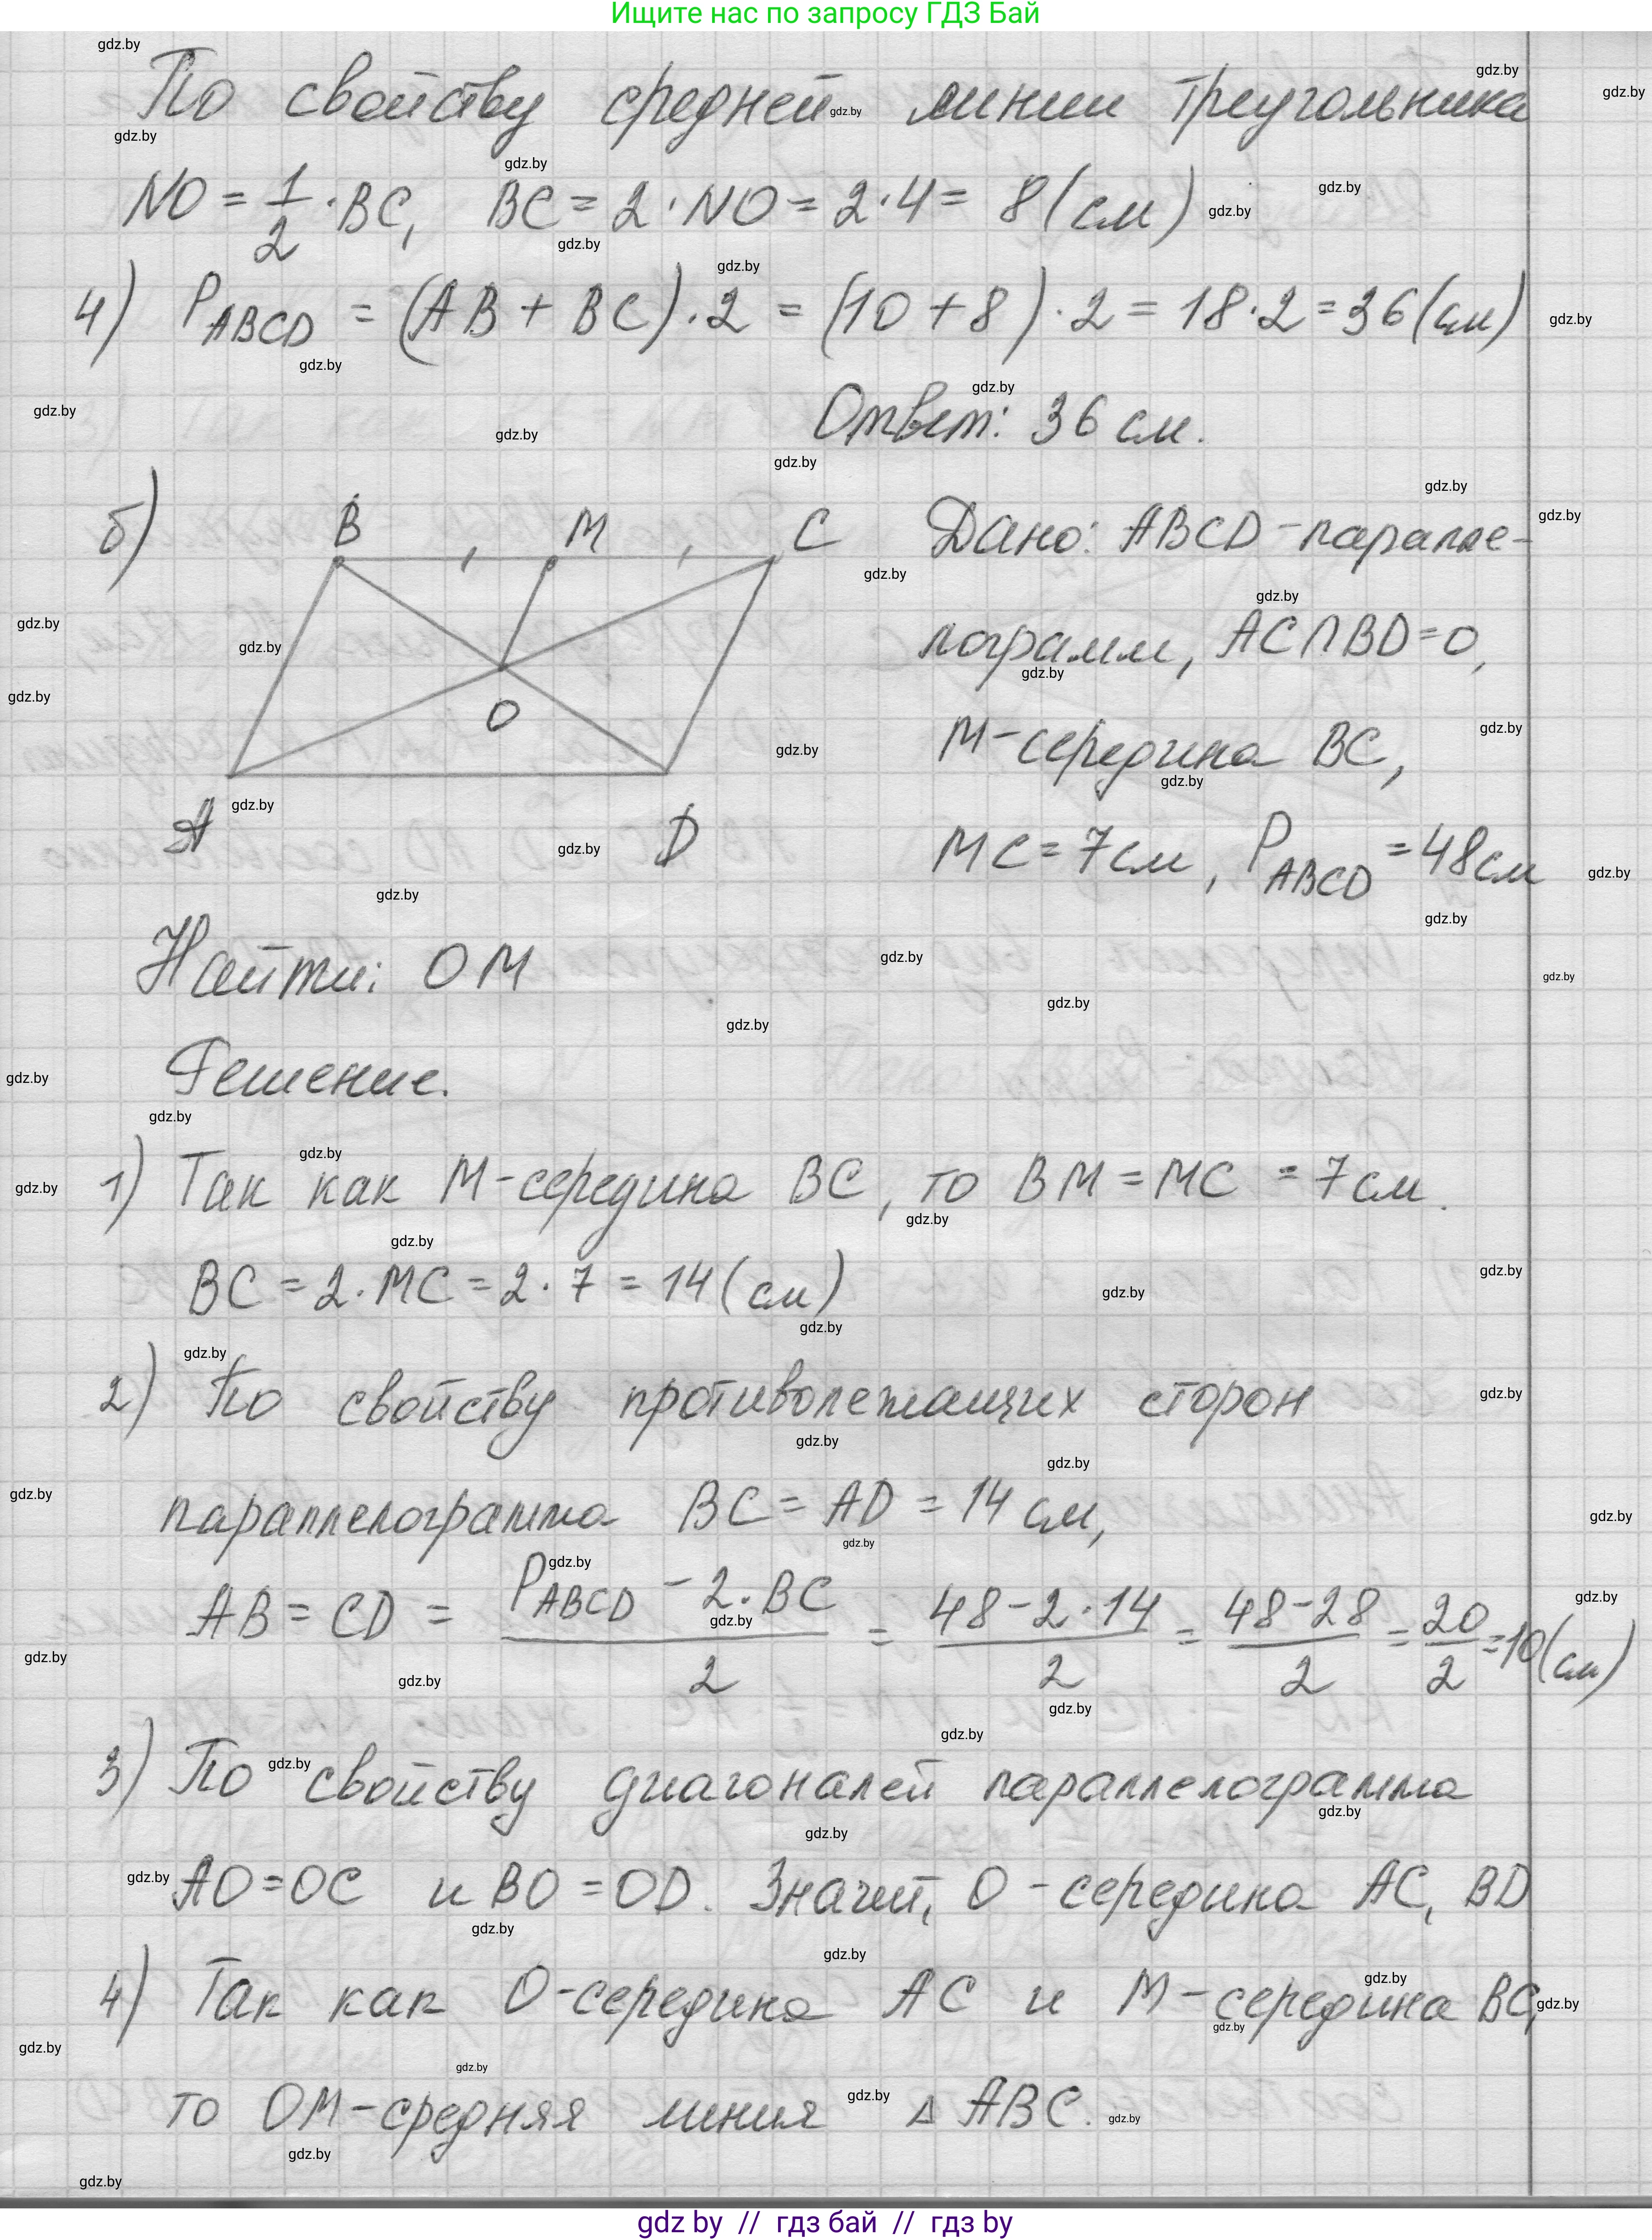 Ищите нас по запросу ГДЗ Бай
По свойству средней линии треугольника
NO = 1/2 · BC, BC = 2 · NO = 2 · 4 = 8 (см)
4) P ABCD = (AB + BC) · 2 = (10 + 8) · 2 = 18 · 2 = 36 (см)
Ответ: 36 см.
б)
B M C
O
A D
Дано: ABCD - паралле-
лограмм, AC∩BD=O,
M - середина BC,
MC = 7 см, P ABCD = 48 см
Найти: OM
Решение.
1) Так как M - середина BC, то BM = MC = 7 см.
BC = 2 · MC = 2 · 7 = 14 (см)
2) По свойству противолежащих сторон
параллелограмма BC = AD = 14 см,
AB = CD = (P ABCD - 2 · BC)/2 = (48 - 2 · 14)/2 = (48 - 28)/2 = 20/2 = 10 (см)
3) По свойству диагоналей параллелограмма
AO = OC и BO = OD. Значит, O - середина AC, BD
4) Так как O - середина AC и M - середина BC,
то OM - средняя линия Δ ABC.
gdz by // гдз бай // гдз by